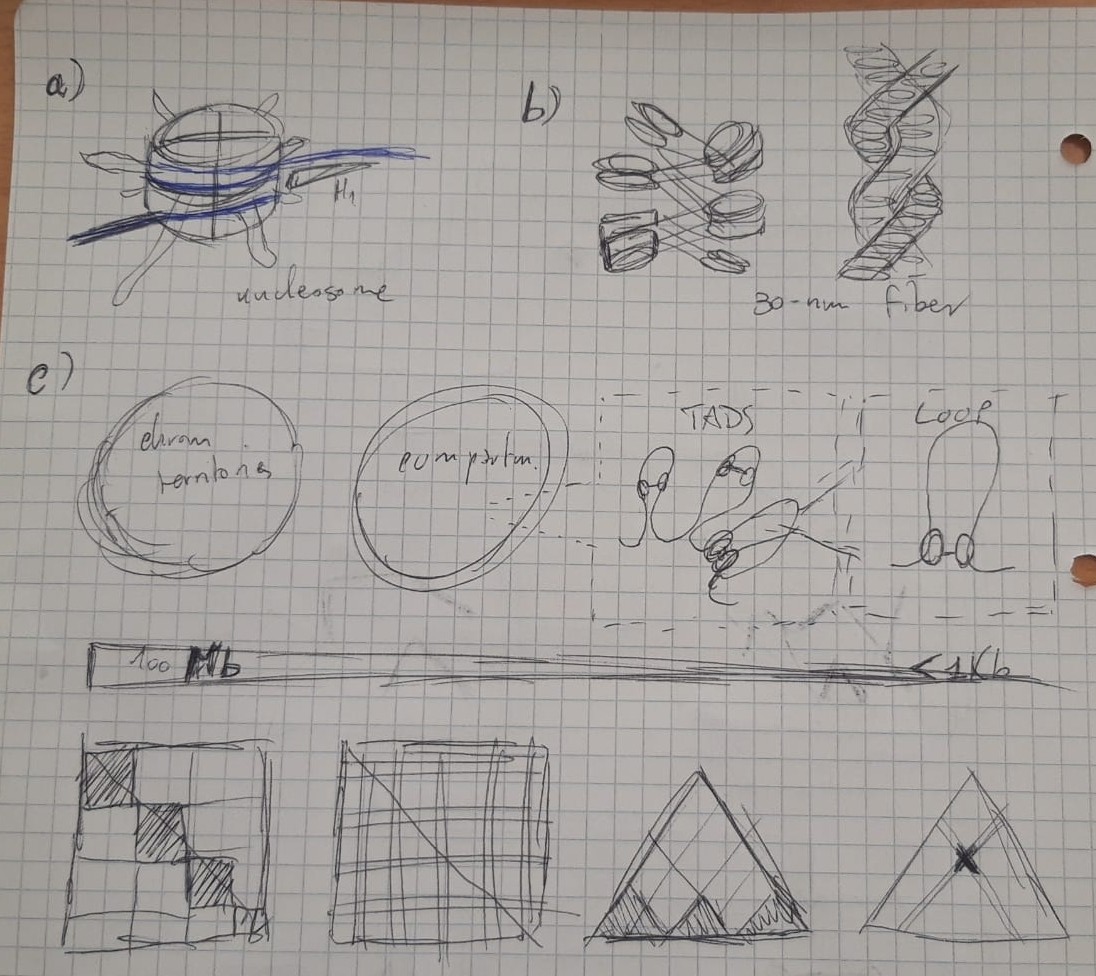 a)
b)
H1
nucleosome
30-nm fiber
c)
chrom
territories
compartm.
TADS
LOOP
100 Mb
<1Kb